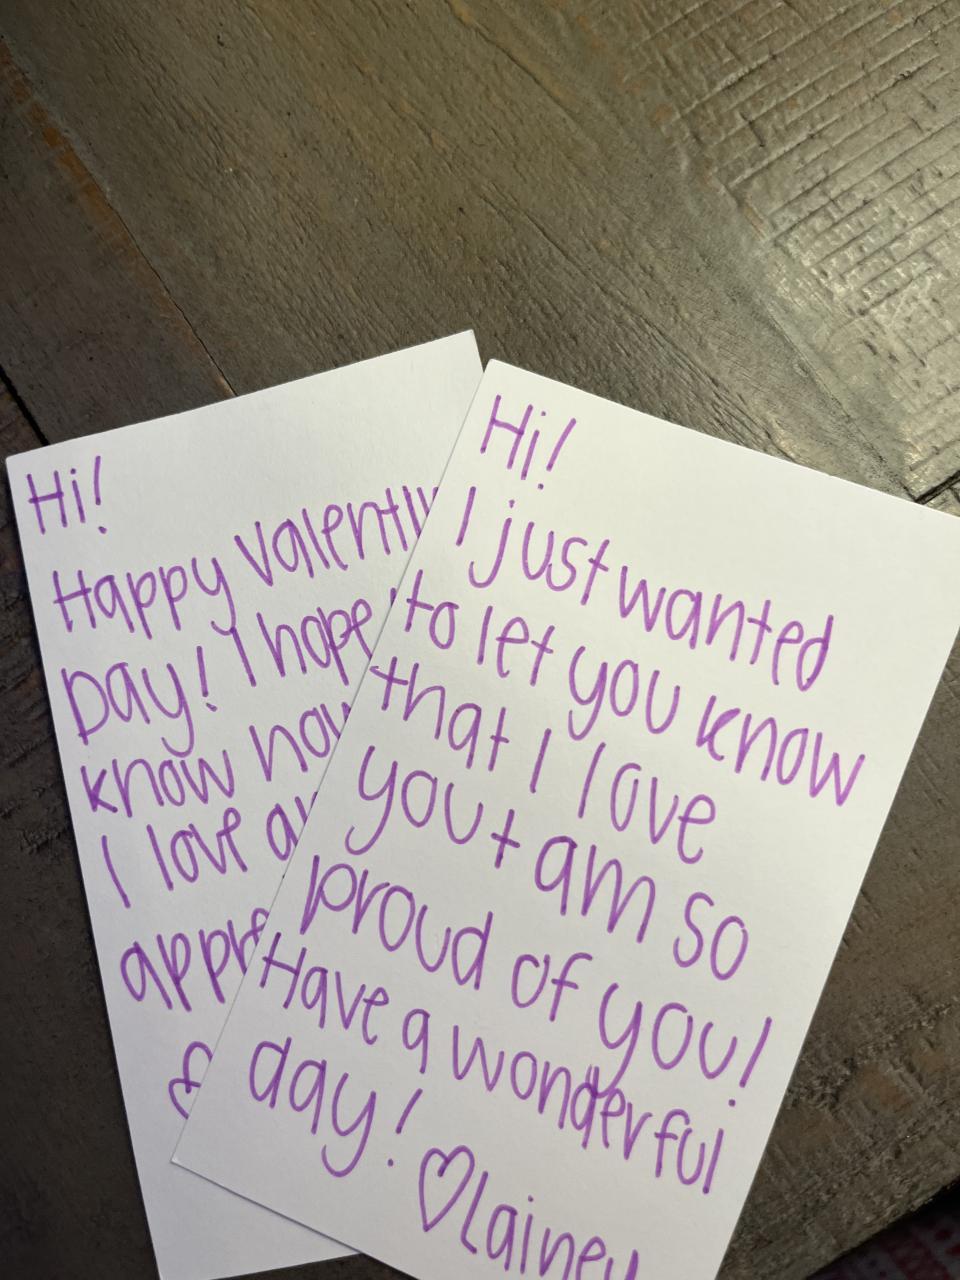 Hi!
Happy Valentin
Day! I hope
know how
I love
appre
Hi!
I just wanted
to let you know
that I love
you + am so
proud of you!
Have a wonderful
day!
♡Lainey